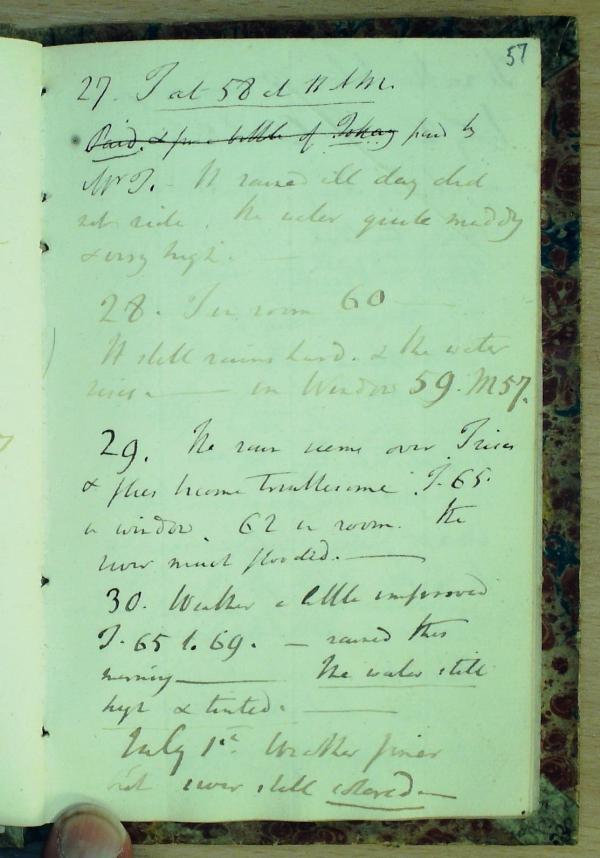 57
27. T at 58 at 11 A.M.
Paid. & fine bottle of Tokay paid by
Mr T. - It rained all day did
not ride. The water quite muddy
& very high. —
28. T in room 60 —
It still rains hard. & the water
rises — in Window 59. M 57.
29. The rain seems over. T rises
& flies become troublesome. T. 65.
in window. 62 in room. The
river much flooded. —
30. Weather a little improved
T. 65 to 69. — rained this
morning — The water still
high & tinted. —
July 1st Weather finer
but river still colored —